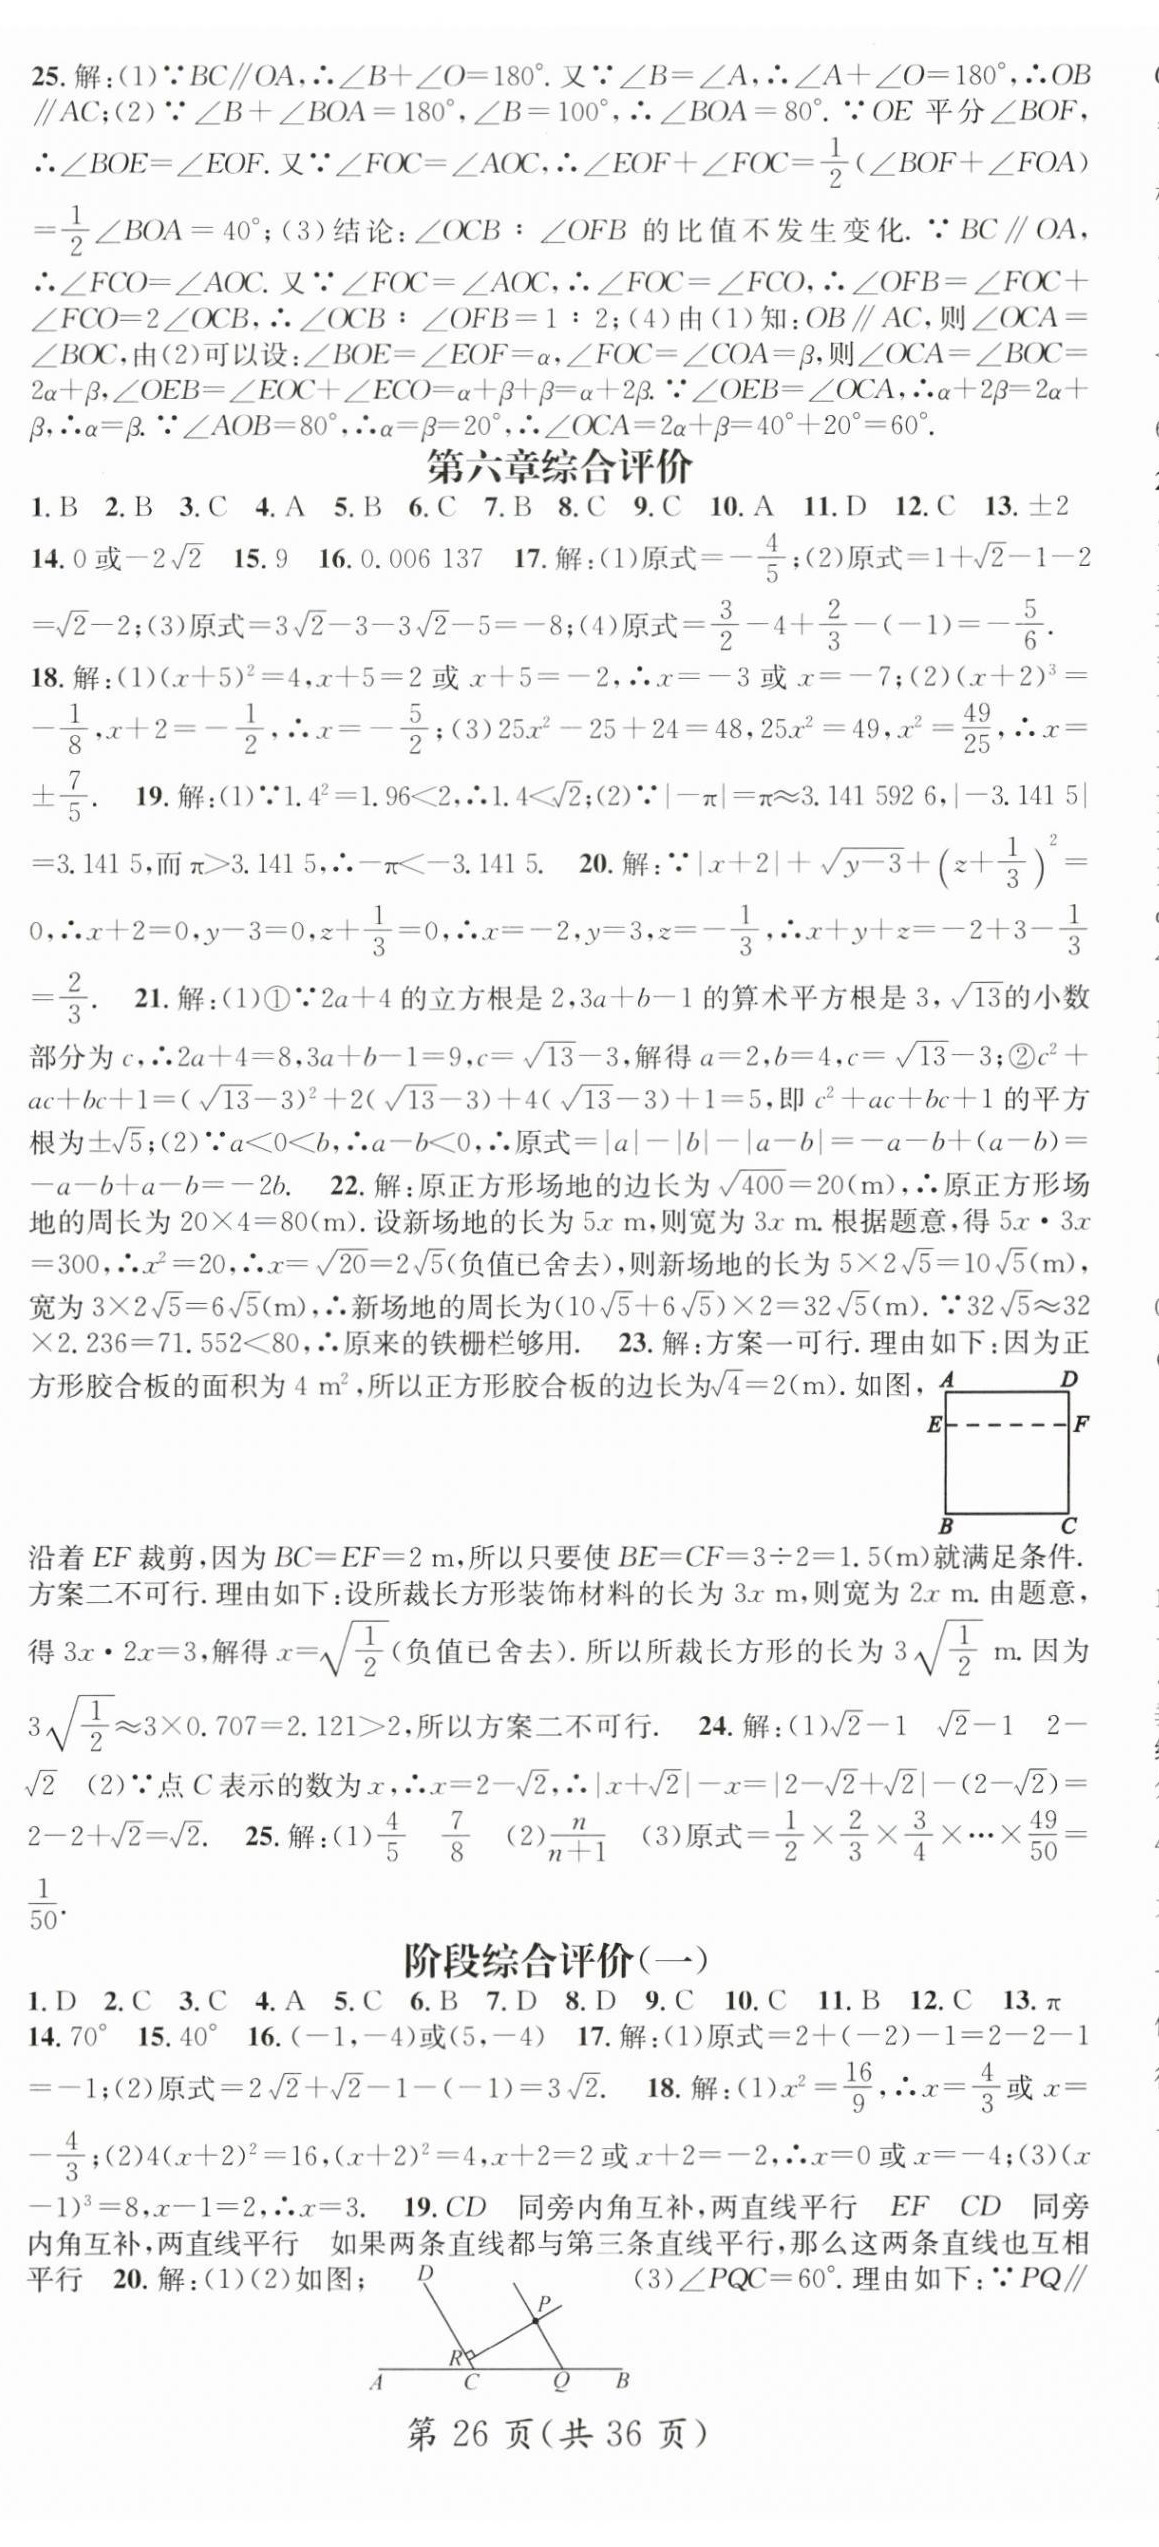 25. 解:(1)∵BC∥OA,∴∠B+∠O=180°. 又∵∠B=∠A,∴∠A+∠O=180°,∴OB
∥AC;(2)∵∠B+∠BOA=180°,∠B=100°,∴∠BOA=80°. ∵OE 平分∠BOF,
∴∠BOE=∠EOF. 又∵∠FOC=∠AOC,∴∠EOF+∠FOC=1/2(∠BOF+∠FOA)
=1/2∠BOA=40°;(3)结论:∠OCB∶∠OFB 的比值不发生变化. ∵BC∥OA,
∴∠FCO=∠AOC. 又∵∠FOC=∠AOC,∴∠FOC=∠FCO,∴∠OFB=∠FOC+
∠FCO=2∠OCB,∴∠OCB∶∠OFB=1∶2;(4)由(1)知:OB∥AC,则∠OCA=
∠BOC,由(2)可以设:∠BOE=∠EOF=α,∠FOC=∠COA=β,则∠OCA=∠BOC=
2α+β,∠OEB=∠EOC+∠ECO=α+β+β=α+2β. ∵∠OEB=∠OCA,∴α+2β=2α+
β,∴α=β. ∵∠AOB=80°,∴α=β=20°,∴∠OCA=2α+β=40°+20°=60°.
第六章综合评价
1. B 2. B 3. C 4. A 5. B 6. C 7. B 8. C 9. C 10. A 11. D 12. C 13. ±2
14. 0 或-2√2 15. 9 16. 0.006 137 17. 解:(1)原式=-4/5;(2)原式=1+√2-1-2
=√2-2;(3)原式=3√2-3-3√2-5=-8;(4)原式=3/2-4+2/3-(-1)=-5/6.
18. 解:(1)(x+5)²=4,x+5=2 或 x+5=-2,∴x=-3 或 x=-7;(2)(x+2)³=
-1/8,x+2=-1/2,∴x=-5/2;(3)25x²-25+24=48,25x²=49,x²=49/25,∴x=
±7/5. 19. 解:(1)∵1.4²=1.96<2,∴1.4<√2;(2)∵|-π|=π≈3.141 592 6,|-3.141 5|
=3.141 5,而 π>3.141 5,∴-π<-3.141 5. 20. 解:∵|x+2|+√(y-3)+(z+1/3)²=
0,∴x+2=0,y-3=0,z+1/3=0,∴x=-2,y=3,z=-1/3,∴x+y+z=-2+3-1/3
=2/3. 21. 解:(1)①∵2a+4 的立方根是 2,3a+b-1 的算术平方根是 3,√13的小数
部分为 c,∴2a+4=8,3a+b-1=9,c=√13-3,解得 a=2,b=4,c=√13-3;②c²+
ac+bc+1=(√13-3)²+2(√13-3)+4(√13-3)+1=5,即 c²+ac+bc+1 的平方
根为±√5;(2)∵a<0<b,∴a-b<0,∴原式=|a|-|b|-|a-b|=-a-b+(a-b)=
-a-b+a-b=-2b. 22. 解:原正方形场地的边长为√400=20(m),∴原正方形场
地的周长为 20×4=80(m). 设新场地的长为 5x m,则宽为 3x m. 根据题意,得 5x·3x
=300,∴x²=20,∴x=√20=2√5(负值已舍去),则新场地的长为 5×2√5=10√5(m),
宽为 3×2√5=6√5(m),∴新场地的周长为(10√5+6√5)×2=32√5(m). ∵32√5≈32
×2.236=71.552<80,∴原来的铁栅栏够用. 23. 解:方案一可行. 理由如下:因为正
方形胶合板的面积为 4 m²,所以正方形胶合板的边长为√4=2(m). 如图,
A D
E F
B C
沿着 EF 裁剪,因为 BC=EF=2 m,所以只要使 BE=CF=3÷2=1.5(m)就满足条件.
方案二不可行. 理由如下:设所裁长方形装饰材料的长为 3x m,则宽为 2x m. 由题意,
得 3x·2x=3,解得 x=√(1/2)(负值已舍去). 所以所裁长方形的长为 3√(1/2) m. 因为
3√(1/2)≈3×0.707=2.121>2,所以方案二不可行. 24. 解:(1)√2-1 √2-1 2-
√2 (2)∵点 C 表示的数为 x,∴x=2-√2,∴|x+√2|-x=|2-√2+√2|-(2-√2)=
2-2+√2=√2. 25. 解:(1)4/5 7/8 (2)n/(n+1) (3)原式=1/2×2/3×3/4×…×49/50=
1/50.
阶段综合评价(一)
1. D 2. C 3. C 4. A 5. C 6. B 7. D 8. D 9. C 10. C 11. B 12. C 13. π
14. 70° 15. 40° 16. (-1,-4)或(5,-4) 17. 解:(1)原式=2+(-2)-1=2-2-1
=-1;(2)原式=2√2+√2-1-(-1)=3√2. 18. 解:(1)x²=16/9,∴x=4/3或 x=
-4/3;(2)4(x+2)²=16,(x+2)²=4,x+2=2 或 x+2=-2,∴x=0 或 x=-4;(3)(x
-1)³=8,x-1=2,∴x=3. 19. CD 同旁内角互补,两直线平行 EF CD 同旁
内角互补,两直线平行 如果两条直线都与第三条直线平行,那么这两条直线也互相
平行 20. 解:(1)(2)如图; (3)∠PQC=60°. 理由如下:∵PQ∥
D
P
R
A C Q B
第 26 页(共 36 页)